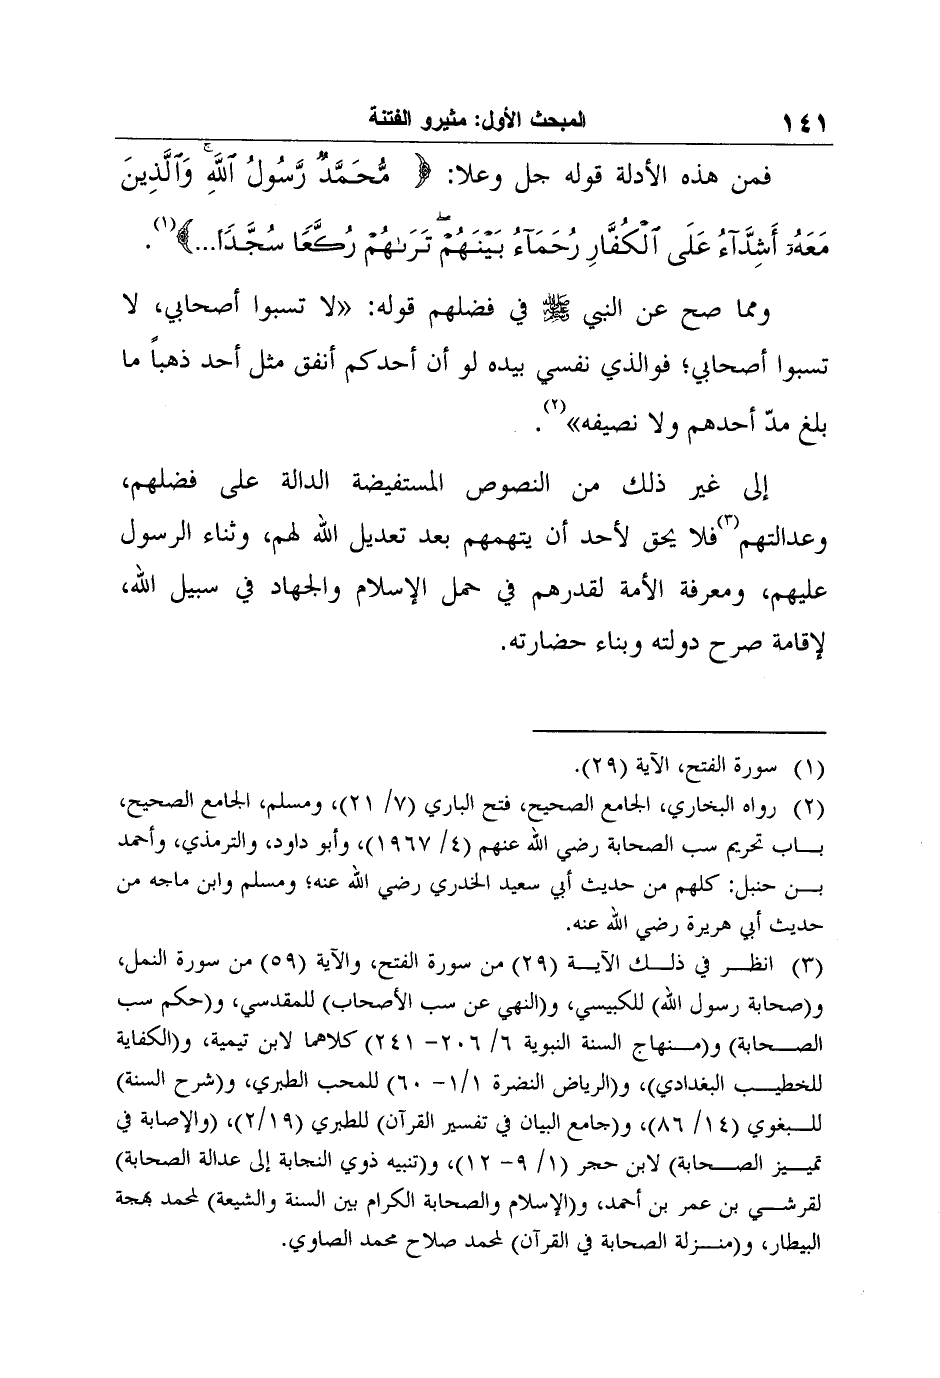 ١٤١ المبحث الأول: مثيرو الفتنة
فمن هذه الأدلة قوله جل وعلا: ﴿ مُّحَمَّدٌ رَّسُولُ ٱللَّهِۚ وَٱلَّذِينَ
مَعَهُۥٓ أَشِدَّآءُ عَلَى ٱلْكُفَّارِ رُحَمَآءُ بَيْنَهُمْۖ تَرَىٰهُمْ رُكَّعًا سُجَّدًا...﴾(١).
ومما صح عن النبي ﷺ في فضلهم قوله: «لا تسبوا أصحابي، لا
تسبوا أصحابي؛ فوالذي نفسي بيده لو أن أحدكم أنفق مثل أحد ذهباً ما
بلغ مدّ أحدهم ولا نصيفه»(٢).
إلى غير ذلك من النصوص المستفيضة الدالة على فضلهم،
وعدالتهم(٣)فلا يحق لأحد أن يتهمهم بعد تعديل الله لهم، وثناء الرسول
عليهم، ومعرفة الأمة لقدرهم في حمل الإسلام والجهاد في سبيل الله،
لإقامة صرح دولته وبناء حضارته.
(١) سورة الفتح، الآية (٢٩).
(٢) رواه البخاري، الجامع الصحيح، فتح الباري (٧/ ٢١)، ومسلم، الجامع الصحيح،
بـاب تحريم سب الصحابة رضي الله عنهم (٤/ ١٩٦٧)، وأبو داود، والترمذي، وأحمد
بـن حنبل: كلهم من حديث أبي سعيد الخدري رضي الله عنه؛ ومسلم وابن ماجه من
حديث أبي هريرة رضي الله عنه.
(٣) انظـر في ذلـك الآيـة (٢٩) من سورة الفتح، والآية (٥٩) من سورة النمل،
و(صحابة رسول الله) للكبيسي، و(النهي عن سب الأصحاب) للمقدسي، و(حكم سب
الصـحابة) و(مـنهاج السنة النبوية ٦/ ٢٠٦- ٢٤١) كلاهما لابن تيمية، و(الكفاية
للخطيـب البغدادي)، و(الرياض النضرة ١/١- ٦٠) للمحب الطبري، و(شرح السنة)
للـبغوي (١٤/ ٨٦)، و(جامع البيان في تفسير القرآن) للطبري (٢/١٩)، (والإصابة في
تميـيز الصـحابة) لابن حجر (١/ ٩- ١٢)، و(تنبيه ذوي النجابة إلى عدالة الصحابة)
لقرشـي بن عمر بن أحمد، و(الإسلام والصحابة الكرام بين السنة والشيعة) لمحمد بهجة
البيطار، و(منـزلة الصحابة في القرآن) لمحمد صلاح محمد الصاوي.